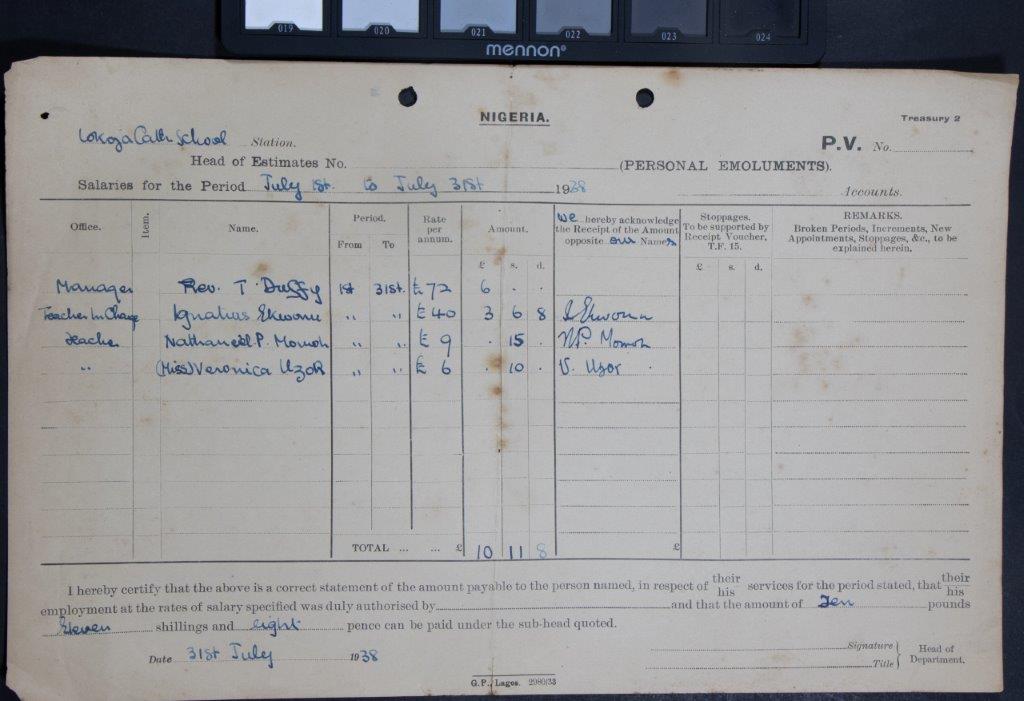 019 020 021 022 023 024
mennon®
NIGERIA.
Treasury 2
Lokoja Cath School Station.
P.V. No.
Head of Estimates No. (PERSONAL EMOLUMENTS).
Salaries for the Period July 1st. to July 31st 1938 Accounts.
Office. Item. Name. Period. From To Rate per annum. Amount. £ s. d. we hereby acknowledge the Receipt of the Amount opposite our Names Stoppages. To be supported by Receipt Voucher, T.F. 15. £ s. d. REMARKS. Broken Periods, Increments, New Appointments, Stoppages, &c., to be explained herein.
Manager Rev. T. Duffy 1st 31st. £72 6 . .
Teacher In Charge Ignatius Ekwonu ,, ,, £40 3 6 8 I. Ekwonu
Teacher Nathaneel P. Momoh ,, ,, £ 9 . 15 . N.P. Momoh
,, (Miss) Veronica Uzor ,, ,, £ 6 . 10 . V. Uzor
TOTAL ... ... £ 10 11 8 £
I hereby certify that the above is a correct statement of the amount payable to the person named, in respect of their his services for the period stated, that their his
employment at the rates of salary specified was duly authorised by and that the amount of Ten pounds
Eleven shillings and eight pence can be paid under the sub-head quoted.
Date 31st July 1938
Signature
Title
Head of Department.
G.P., Lagos. 2980/33